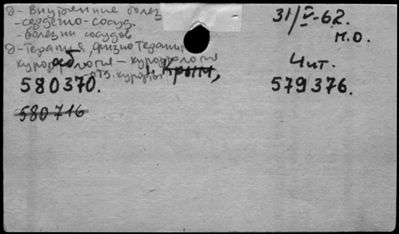 Д- Внутренние болез
-сердечно-сосуд.
- болезни сосудов
Д-Терапия, физиотерапия
курортология - курортология
аб.
отд. курорты
Крым,
580370.
580716
31/V-62.
М.О.
Чит.
579376.